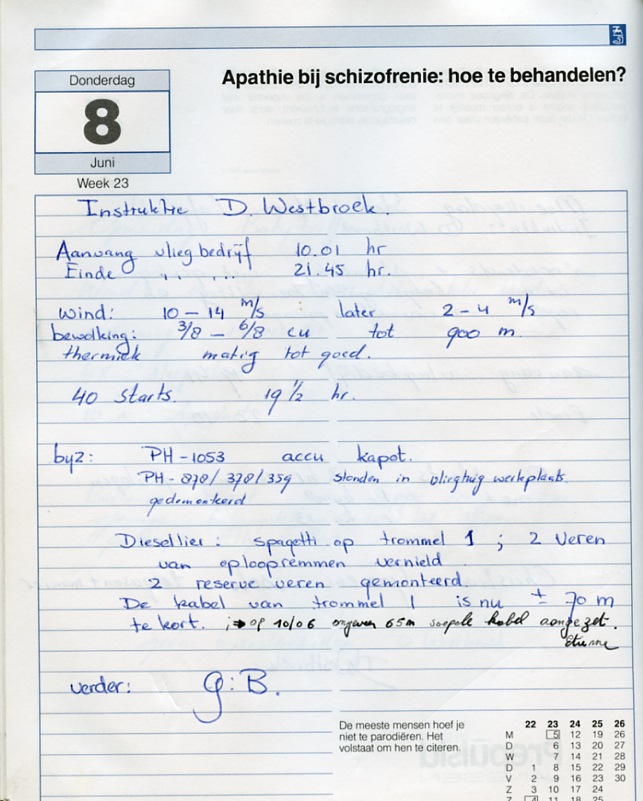 Donderdag
8
Juni
Week 23
Apathie bij schizofrenie: hoe te behandelen?
Instruktie D. Westbroek.
Aanvang vliegbedrijf 10.01 hr
Einde ,, ,, 21.45 hr.
Wind: 10 - 14 m/s later 2 - 4 m/s
bewolking: 3/8 - 6/8 cu tot 900 m.
thermiek matig tot goed.
40 starts. 19 1/2 hr.
byz: PH - 1053 accu kapot.
PH - 878 / 378 / 359 stonden in vliegtuig werkplaats
gedemonteerd
Diesellier: spagetti op trommel 1 ; 2 veren
van oploopremmen vernield.
2 reserve veren gemonteerd.
De kabel van trommel 1 is nu ± 70 m
te kort. op 10/06 ongeveer 65m soepele kabel aangezet.
Etienne
verder: G.B.
De meeste mensen hoef je
niet te parodiëren. Het
volstaat om hen te citeren.
22 23 24 25 26
M 5 12 19 26
D 6 13 20 27
W 7 14 21 28
D 1 8 15 22 29
V 2 9 16 23 30
Z 3 10 17 24
Z 4 11 18 25